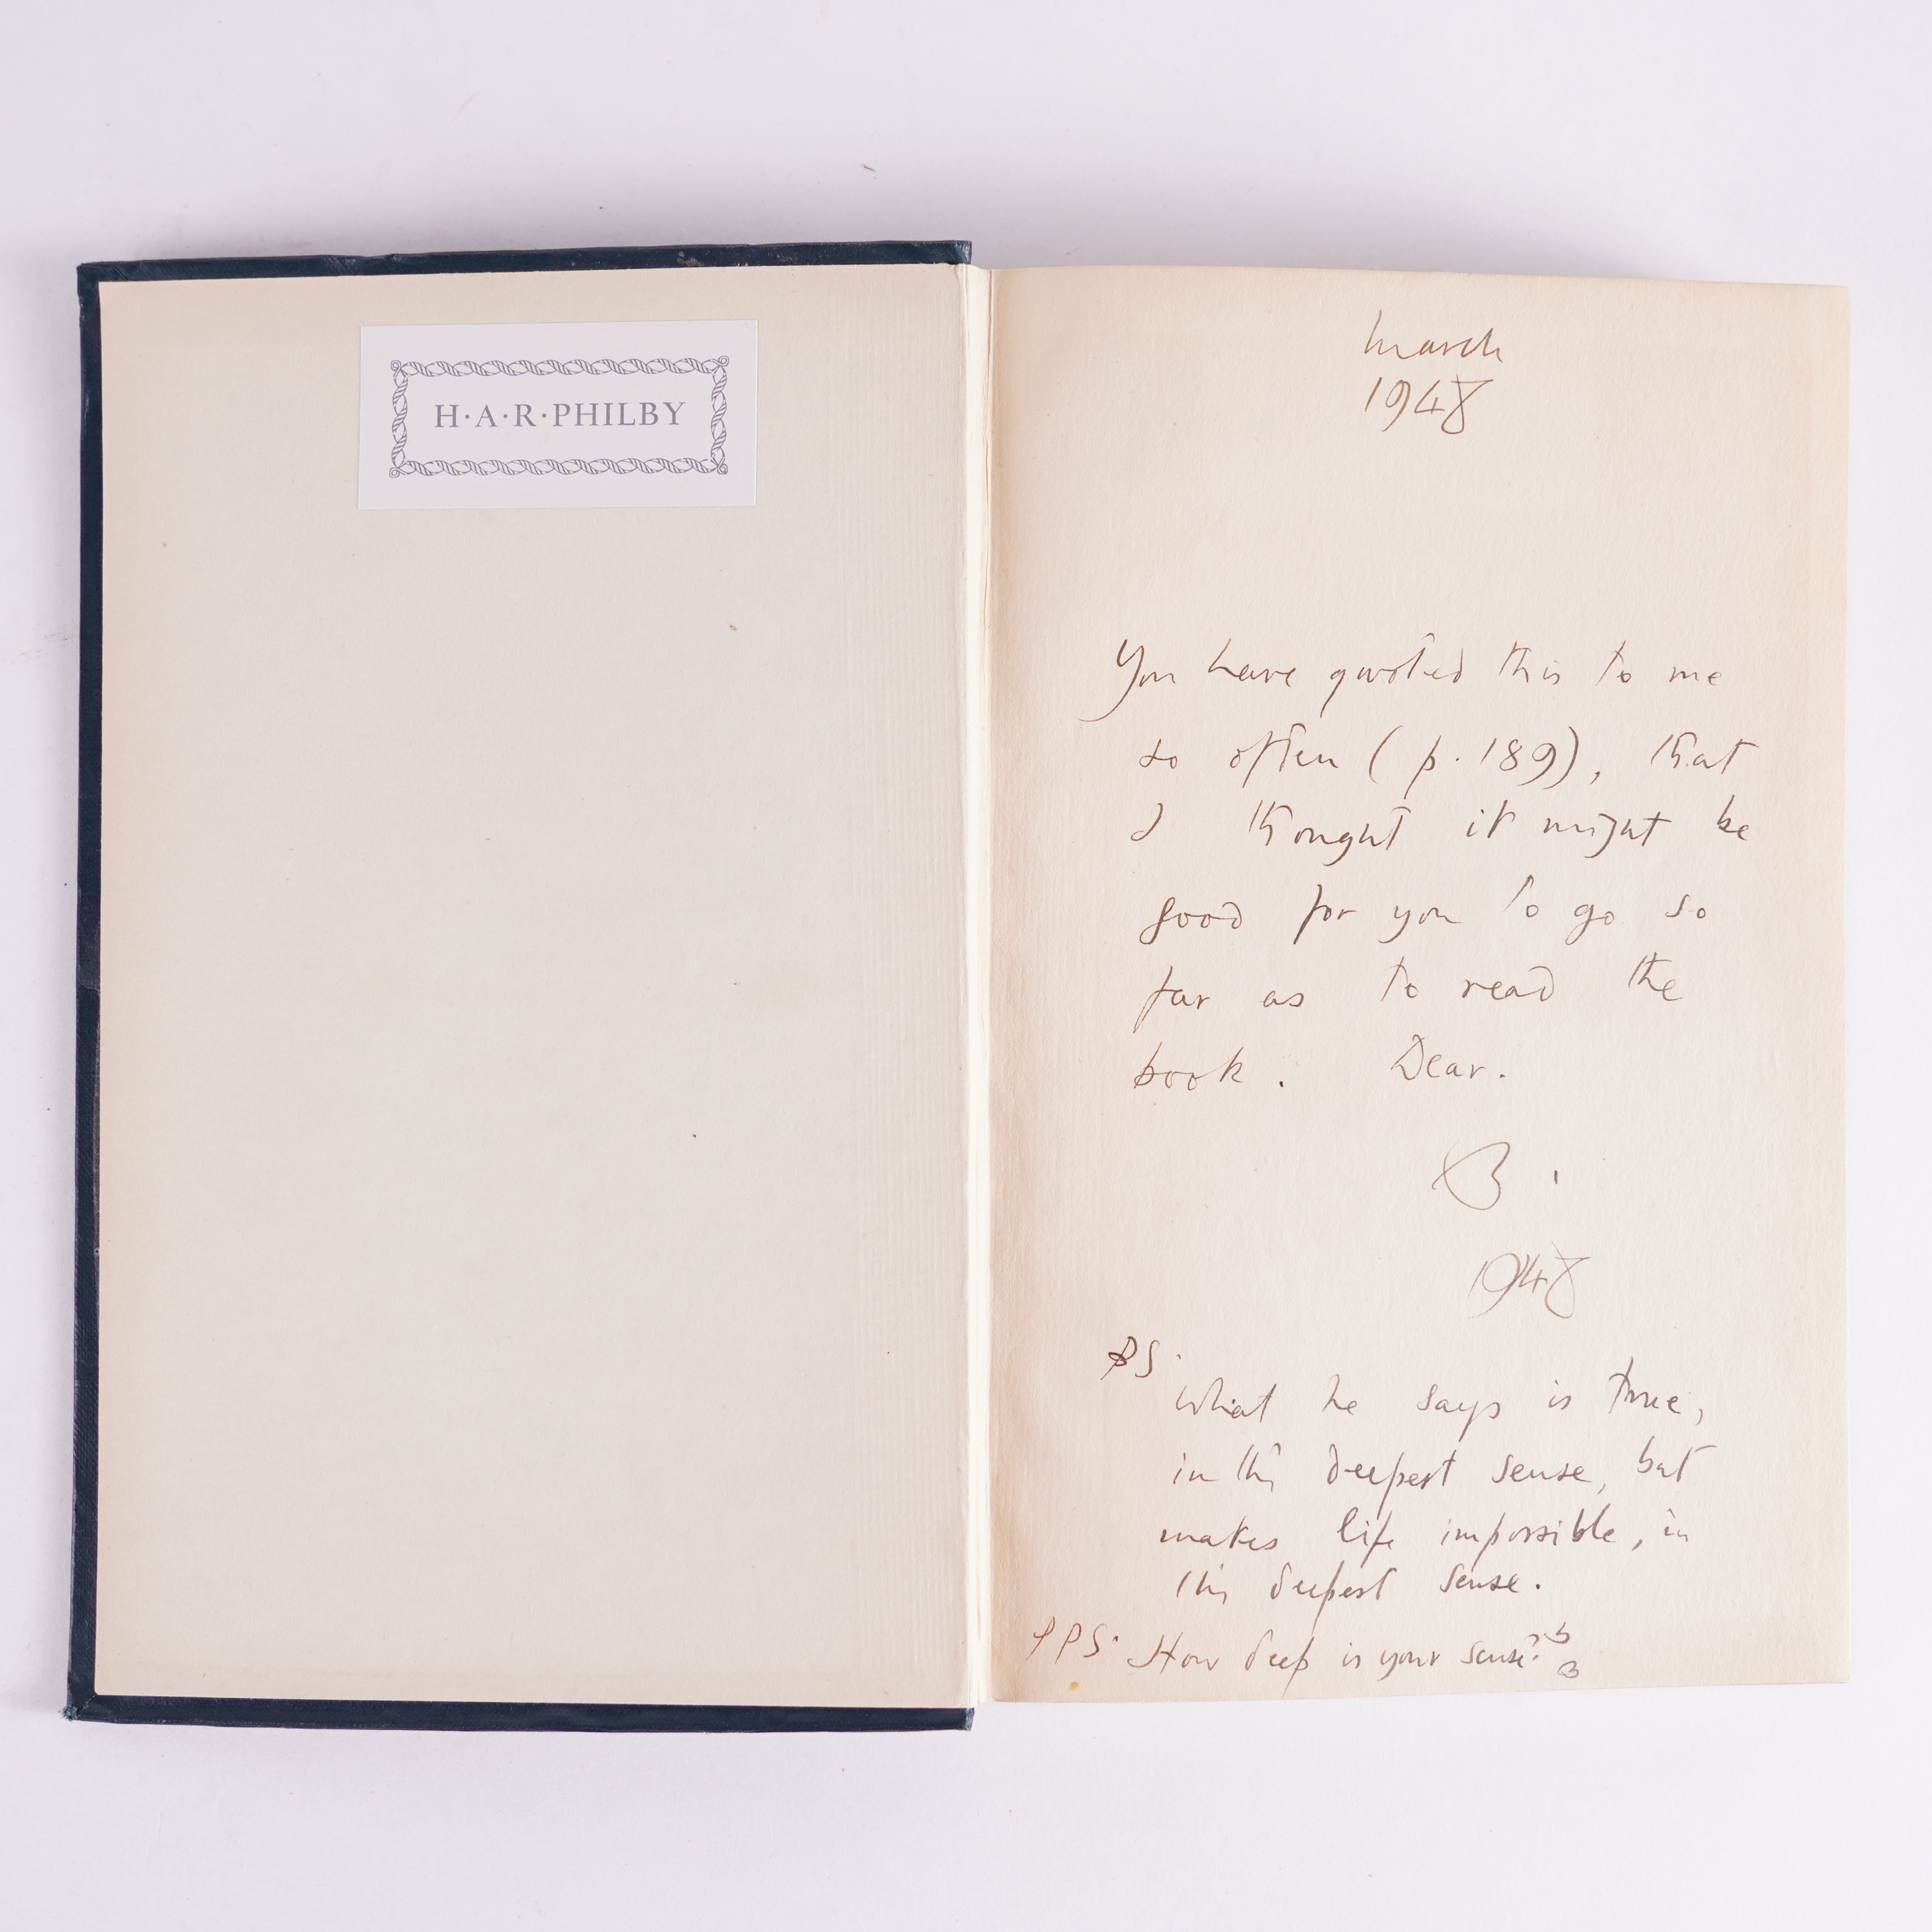 H·A·R·PHILBY
March
1948
You have quoted this to me
so often (p. 189), that
I thought it might be
good for you to go so
far as to read the
book. Dear.
B.
1948
PS.
What he says is true,
in the deepest sense, but
makes life impossible, in
the deepest sense.
PPS. How deep is your sense?
B